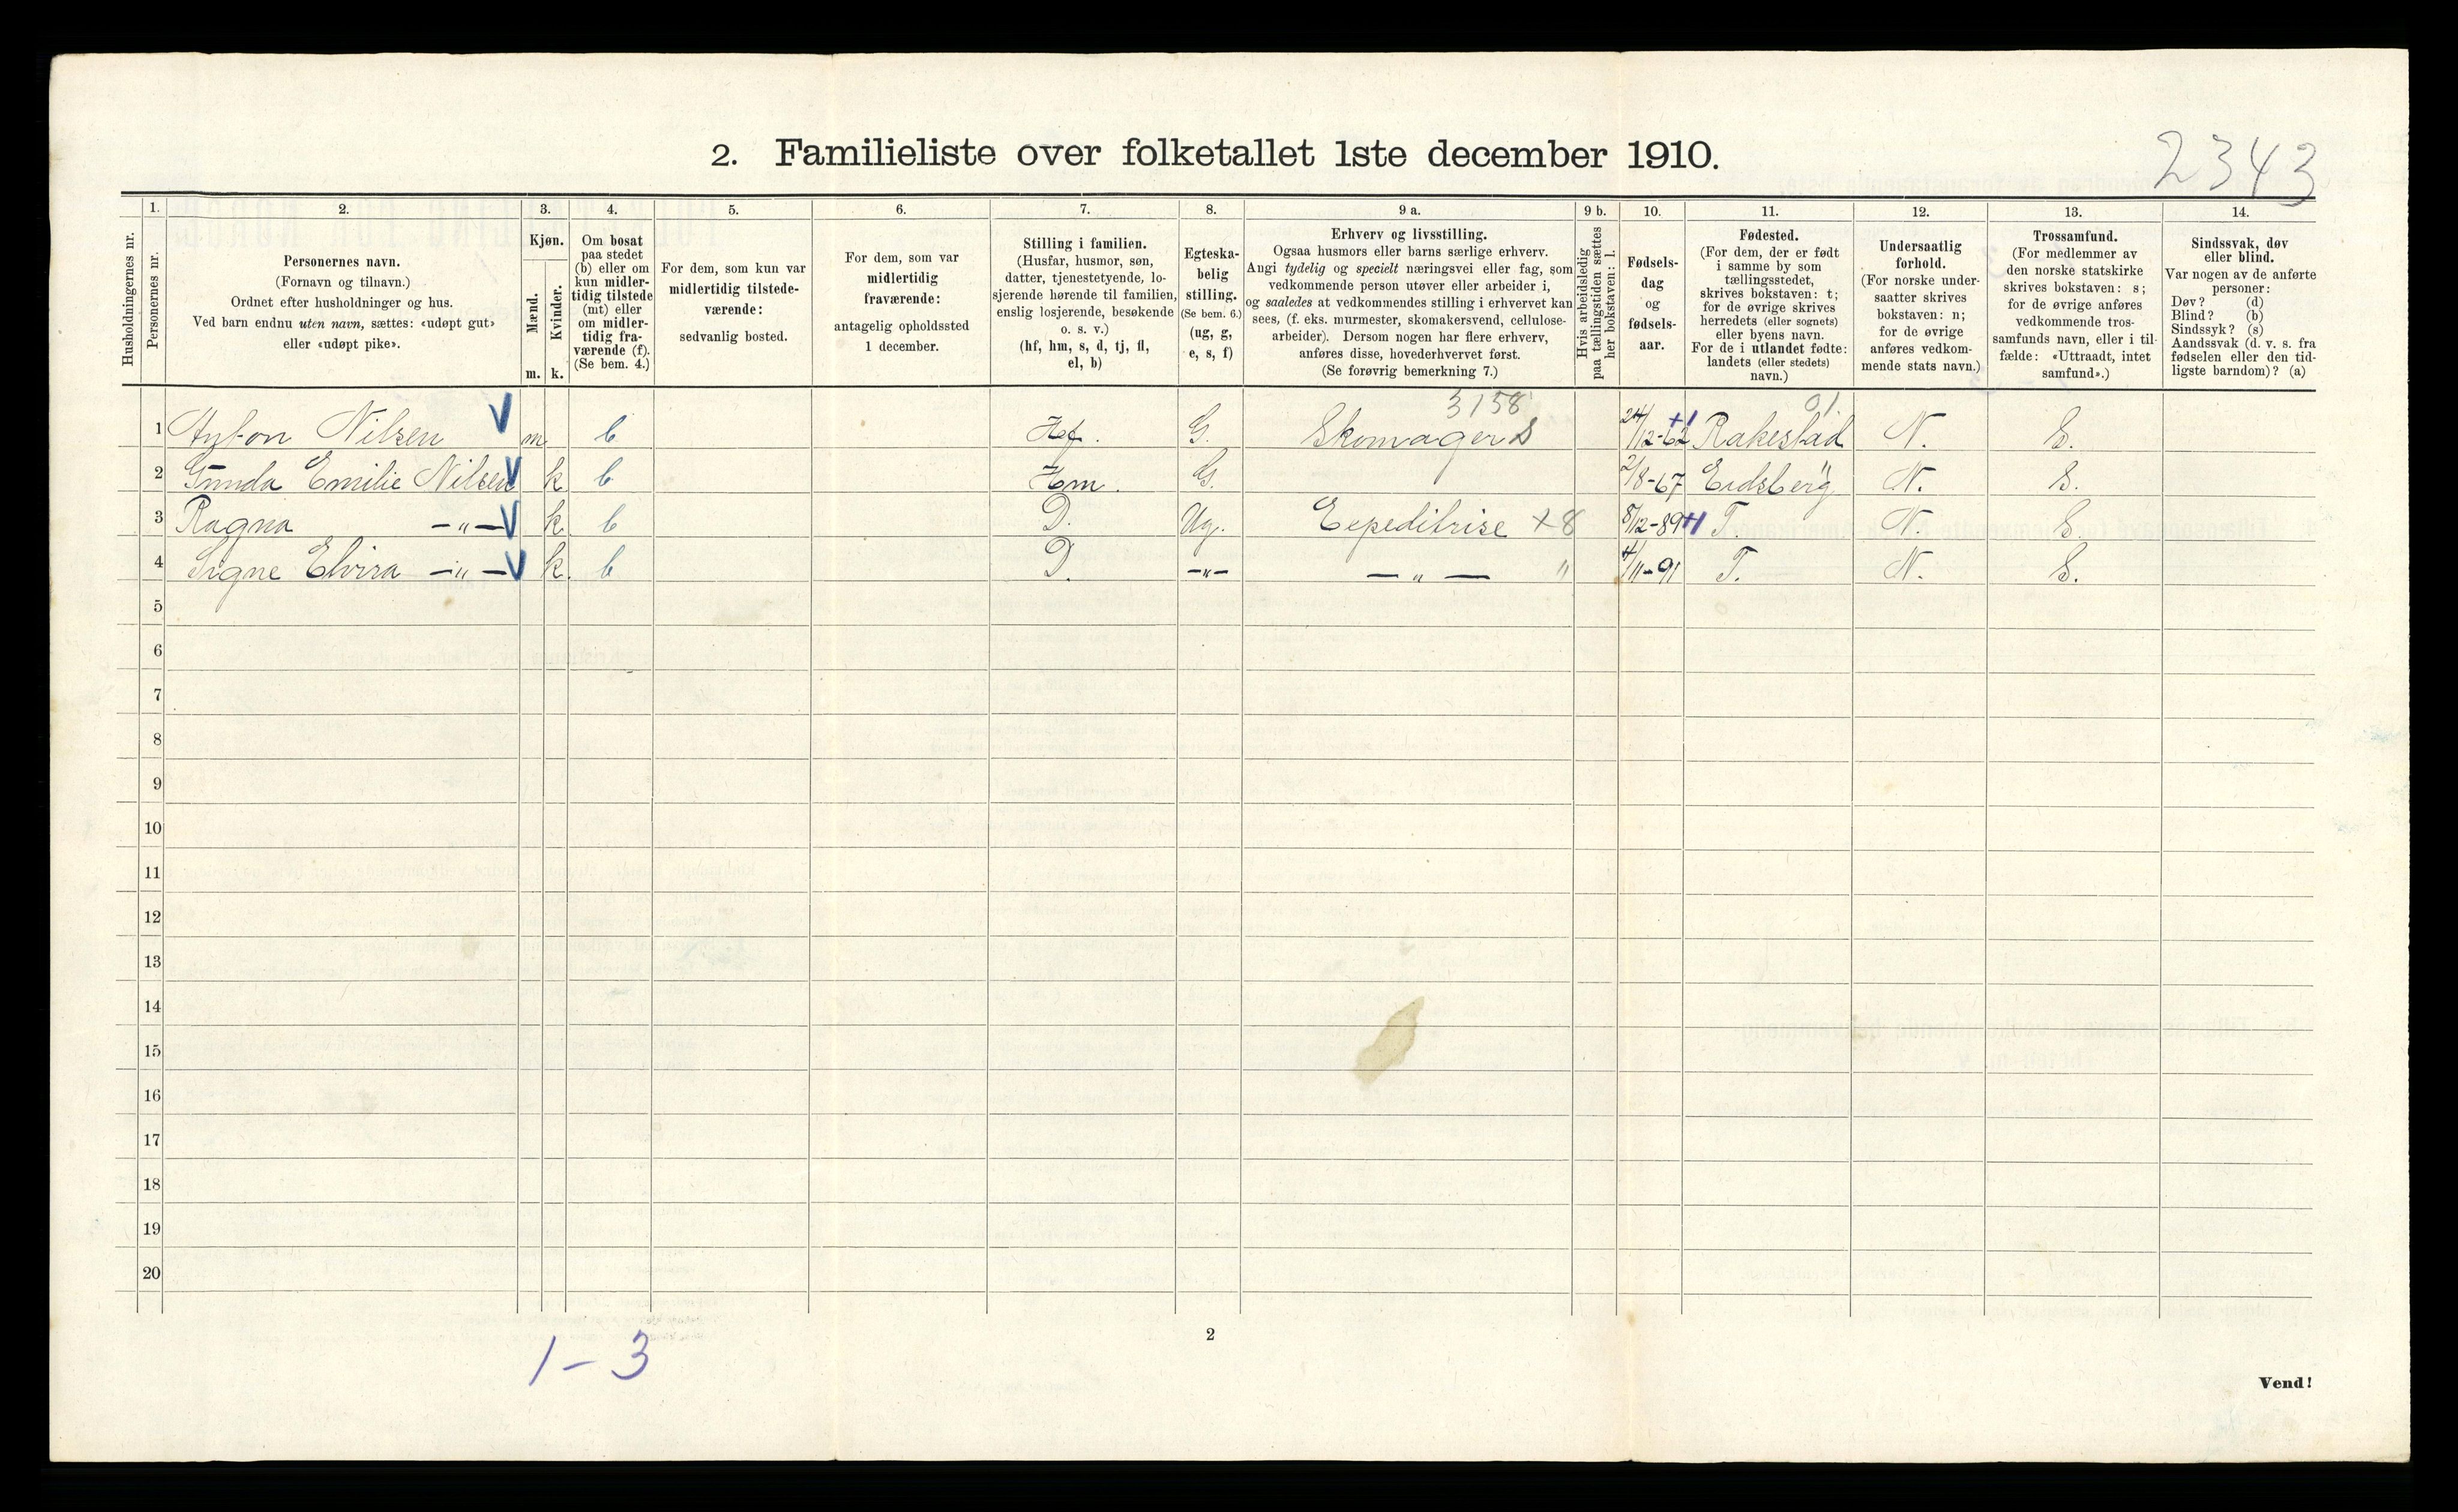 2. Familieliste over folketallet 1ste december 1910.
2343
Husholdningernes nr.
1. Personernes nr.
2. Personernes navn. (Fornavn og tilnavn.) Ordnet efter husholdninger og hus. Ved barn endnu uten navn, sættes: «udøpt gut» eller «udøpt pike».
3. Kjøn. Mænd. m. Kvinder. k.
4. Om bosat paa stedet (b) eller om kun midler-tidig tilstede (mt) eller om midler-tidig fra-værende (f). (Se bem. 4.)
5. For dem, som kun var midlertidig tilstede-værende: sedvanlig bosted.
6. For dem, som var midlertidig fraværende: antagelig opholdssted 1 december.
7. Stilling i familien. (Husfar, husmor, søn, datter, tjenestetyende, lo-sjerende hørende til familien, enslig losjerende, besøkende o. s. v.) (hf, hm, s, d, tj, fl, el, b)
8. Egteska-belig stilling. (Se bem. 6.) (ug, g, e, s, f)
9 a. Erhverv og livsstilling. Ogsaa husmors eller barns særlige erhverv. Angi tydelig og specielt næringsvei eller fag, som vedkommende person utøver eller arbeider i, og saaledes at vedkommendes stilling i erhvervet kan sees, (f. eks. murmester, skomakersvend, cellulose-arbeider). Dersom nogen har flere erhverv, anføres disse, hovederhvervet først. (Se forøvrig bemerkning 7.)
9 b. Hvis arbeidsledig paa tællingstiden sættes her bokstaven: l.
10. Fødsels-dag og fødsels-aar.
11. Fødested. (For dem, der er født i samme by som tællingsstedet, skrives bokstaven: t; for de øvrige skrives herredets (eller sognets) eller byens navn. For de i utlandet fødte: landets (eller stedets) navn.)
12. Undersaatlig forhold. (For norske under-saatter skrives bokstaven: n; for de øvrige anføres vedkom-mende stats navn.)
13. Trossamfund. (For medlemmer av den norske statskirke skrives bokstaven: s; for de øvrige anføres vedkommende tros-samfunds navn, eller i til-fælde: «Uttraadt, intet samfund».)
14. Sindssvak, døv eller blind. Var nogen av de anførte personer: Døv? (d) Blind? (b) Sindssyk? (s) Aandssvak (d. v. s. fra fødselen eller den tid-ligste barndom)? (a)
3158 01
1 Anton Nilsen V m b Hf. G. Skomager S 24/12-62 +1 Rakestad N. S.
2 Gunda Emilie Nilsen V k b Hm. G. 2/8-67 Eidsberg " N. S.
3 Ragna —"— V k b D. Ug. Expeditrise +8 8/12-89 +1 T. N. S.
4 Signe Elvira —"— V k. b D. —"— —"— " 4/11-91 T. N. S.
5
6
7
8
9
10
11
12
13
14
15
16
17
18
19
20
1-3
2
Vend!